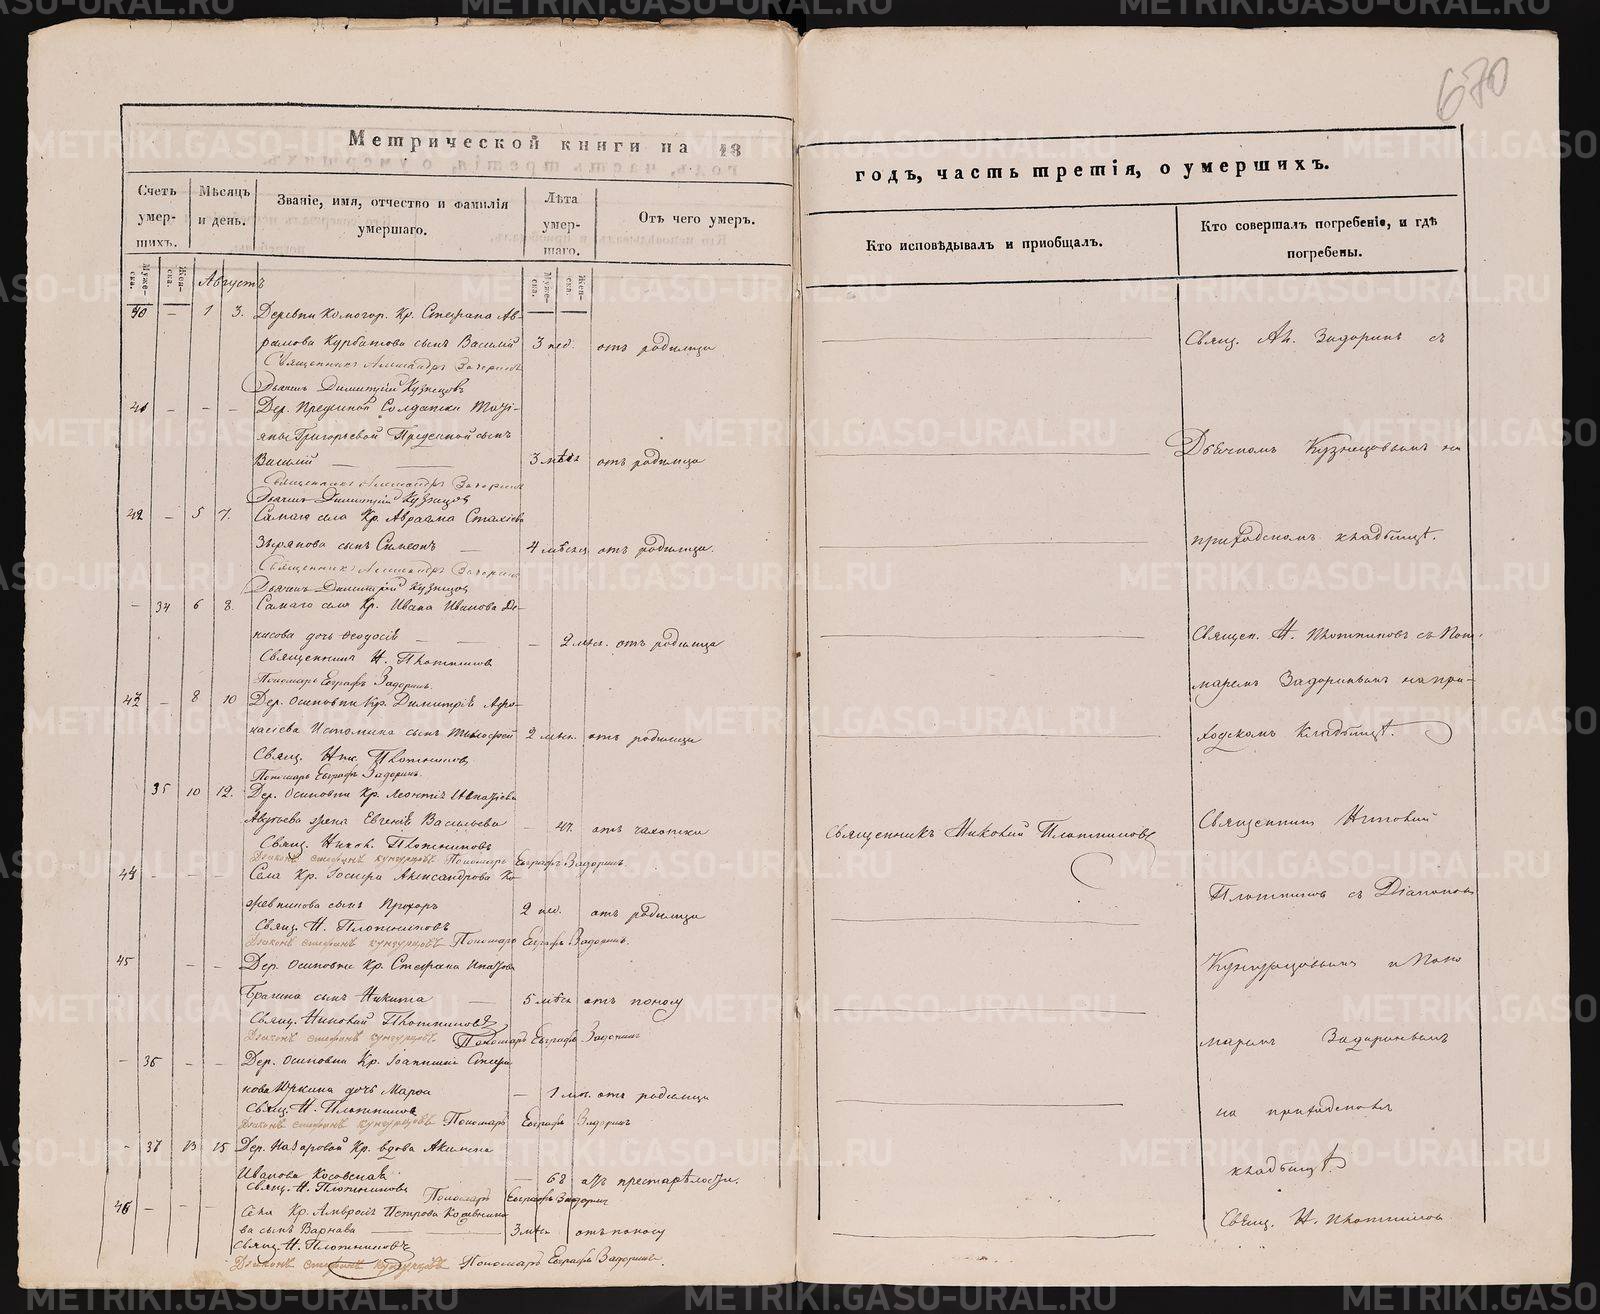 670
Метрической книги на 18
годъ, часть третія, о умершихъ.
Счетъ умершихъ.
Мѣсяцъ и день.
Званіе, имя, отчество и фамилія умершаго.
Лѣта умершаго.
Отъ чего умеръ.
Кто исповѣдывалъ и приобщалъ.
Кто совершалъ погребеніе, и гдѣ погребены.
Муже- ска. Жен- ска.
Августъ
Муже- ска. Жен- ска.
40 — 1 3. Деревни Комогор. Кр. Стефана Ав-
рамова Курбатова сынъ Василій 3 нед. отъ родимца
Священникъ Александръ Задоринъ
Дьячекъ Димитрій Кузнецовъ
Свящ. Ал. Задоринъ съ
41 — — — Дер. Солдатки Таті-
яны Григорьевой сынъ
Василій 3 мѣся отъ родимца
Священникъ Александръ Задоринъ
Дьячекъ Димитрій Кузнецов
Дьячкомъ Кузнецовымъ на
42 — 5 7. Самаго села Кр. Авраама
Зырянова сынъ Симеонъ — 4 мѣсяц отъ родимца.
Священникъ Александръ Задоринъ
Дьячекъ Димитрій Кузнецов
приходскомъ кладбищѣ.
— 34 6 8. Самаго села Кр. Ивана Иванова Де-
нисова дочь Ѳеодосія — 2 мѣс. отъ родимца
Священникъ Н. Плотниковъ
Пономарь Евграфъ Задоринъ.
Священ. Н. Плотниковъ съ Поно-
маремъ Задоринымъ на при-
43 — 8 10 Дер. Осиповки Кр. Димитрія Афо-
насіева Истомина сынъ 2 мѣс. отъ родимца
Свящ. Ник. Плотниковъ
Пономарь Евграфъ Задоринъ.
ходскомъ кладбищѣ.
35 10 12. Дер. Осиповки Кр. Леонтія Игнатіева
жена Евгенія Васильева — 47. отъ чахотки
Свящ. Никол. Плотниковъ
Діаконъ Стефанъ Кунгурцовъ Пономарь Евграфъ Задоринъ.
Священникъ Николай Плотниковъ
Священникъ Николай
44 — — — Села Кр. Іосифа Александрова Ко-
жевникова сынъ Прохоръ 2 нед. отъ родимца
Свящ. Н. Плотниковъ
Діаконъ Стефанъ Кунгурцовъ Пономарь Евграфъ Задоринъ.
Плотниковъ съ Діакономъ
45 — — Дер. Осиповки Кр. Стефана
сынъ Никита — 5 мѣся отъ поносу
Свящ. Николай Плотниковъ
Діаконъ Стефанъ Кунгурцовъ. Пономарь Евграфъ Задоринъ
Кунгурцовымъ и Поно
— 36 — — Дер. Осиповки Кр.
дочь Марѳа — 1 мѣс. отъ родимца
Свящ. Н. Плотниковъ
Діаконъ Стефанъ Кунгурцовъ Пономарь Евграфъ Задоринъ
маремъ Задоринымъ
на приходскомъ
— 37 13 15 Дер. Назаровой Кр. вдова Акилина
Иванова — 68 отъ престарѣлости.
Свящ. Н. Плотниковъ Пономарь Евграфъ Задоринъ
кладбищѣ.
46 — — — Села Кр. Амвросія Петрова Кожевнико
ва сынъ Варнава 3 мѣся отъ поносу
Свящ. Н. Плотниковъ
Діаконъ Стефанъ Кунгурцовъ Пономарь Евграфъ Задоринъ.
Свящ. Н. Плотниковъ
METRIKI.GASO-URAL.RU